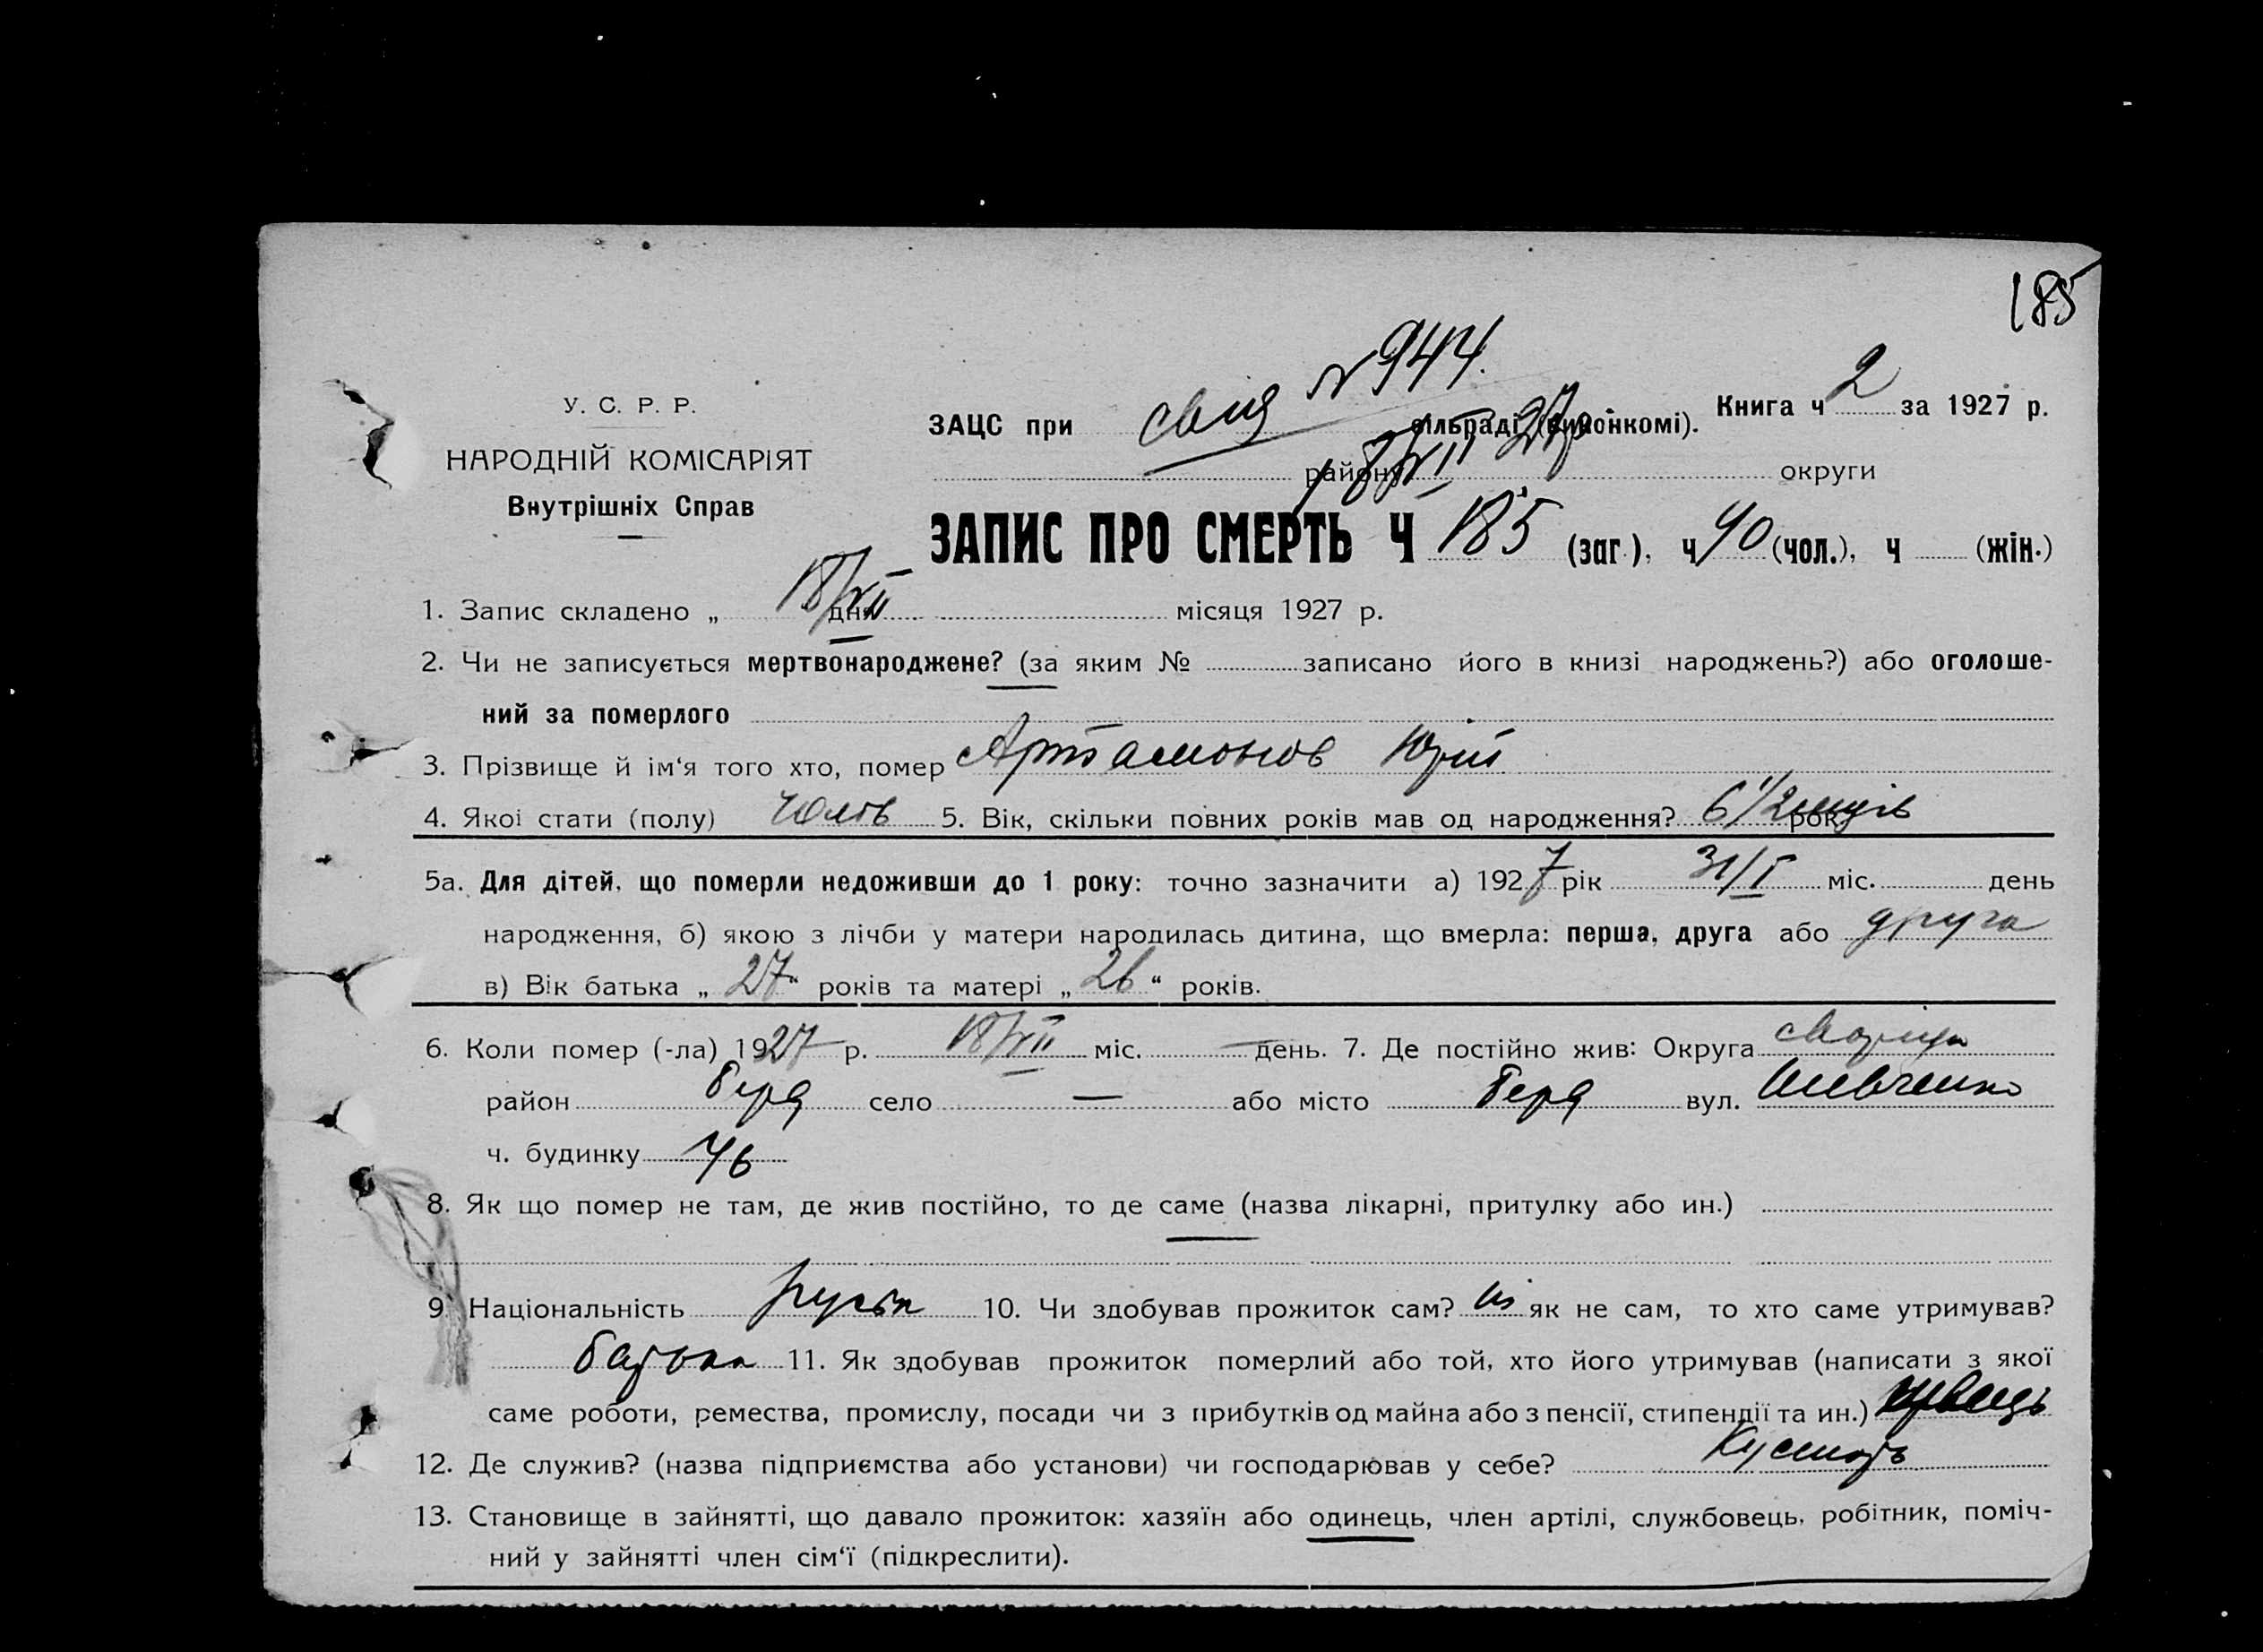 185
У. С. Р. Р.
НАРОДНІЙ КОМІСАРІЯТ
Внутрішніх Справ
№ 944.
ЗАЦС при свид сільраді (виконкомі). Книга ч 2 за 1927 р.
18/VII 27 р.
району округи
ЗАПИС ПРО СМЕРТЬ Ч 185 (заг.), ч 90 (чол.), ч (жін.)
1. Запис складено „ 18/VII дня місяця 1927 р.
2. Чи не записується мертвонароджене? (за яким № записано його в книзі народжень?) або оголоше-
ний за померлого
3. Прізвище й ім'я того хто, помер Артамонов Юрій
4. Якої стати (полу) чолов 5. Вік, скільки повних років мав од народження? 6 1/2 місців рок.
5а. Для дітей, що померли недоживши до 1 року: точно зазначити а) 1927 рік 31/I міс. день
народження, б) якою з лічби у матери народилась дитина, що вмерла: перша, друга або друга
в) Вік батька „ 27 “ років та матері „ 26 “ років.
6. Коли помер (-ла) 1927 р. 18/VII міс. — день. 7. Де постійно жив: Округа
район Берд село — або місто Берд вул. Шевченко
ч. будинку 46
8. Як що помер не там, де жив постійно, то де саме (назва лікарні, притулку або ин.)
9. Національність руськ 10. Чи здобував прожиток сам? ні як не сам, то хто саме утримував?
батько 11. Як здобував прожиток померлий або той, хто його утримував (написати з якої
саме роботи, ремества, промислу, посади чи з прибутків од майна або з пенсії, стипендії та ин.) кравець
12. Де служив? (назва підприємства або установи) чи господарював у себе? Кустарь
13. Становище в зайнятті, що давало прожиток: хазяїн або одинець, член артілі, службовець, робітник, поміч-
ний у зайнятті член сім'ї (підкреслити).